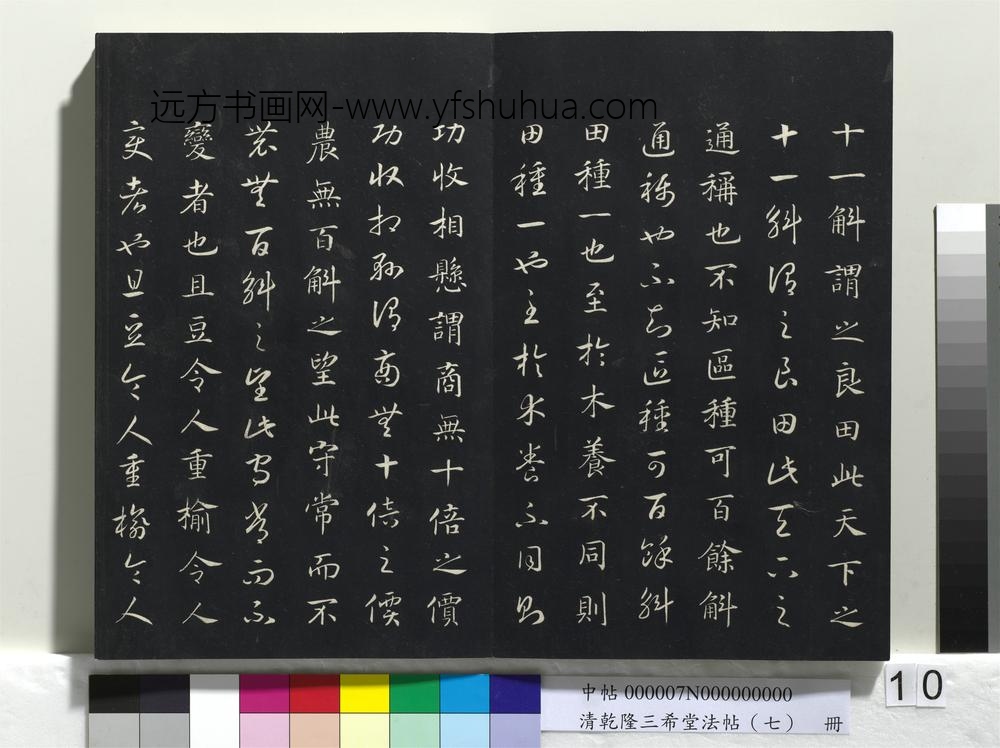 远方书画网-www.yfshuhua.com
十一斛謂之良田此天下之
十一斛謂之良田此天下之
通稱也不知區種可百餘斛
通稱也不知區種可百餘斛
田種一也至於木養不同則
田種一也至於木養不同則
功收相懸謂商無十倍之價
功收相懸謂商無十倍之價
農無百斛之望此守常而不
農無百斛之望此守常而不
變者也且豆令人重榆令人
變者也且豆令人重榆令人
中帖 000007N000000000
清乾隆三希堂法帖（七） 冊
10